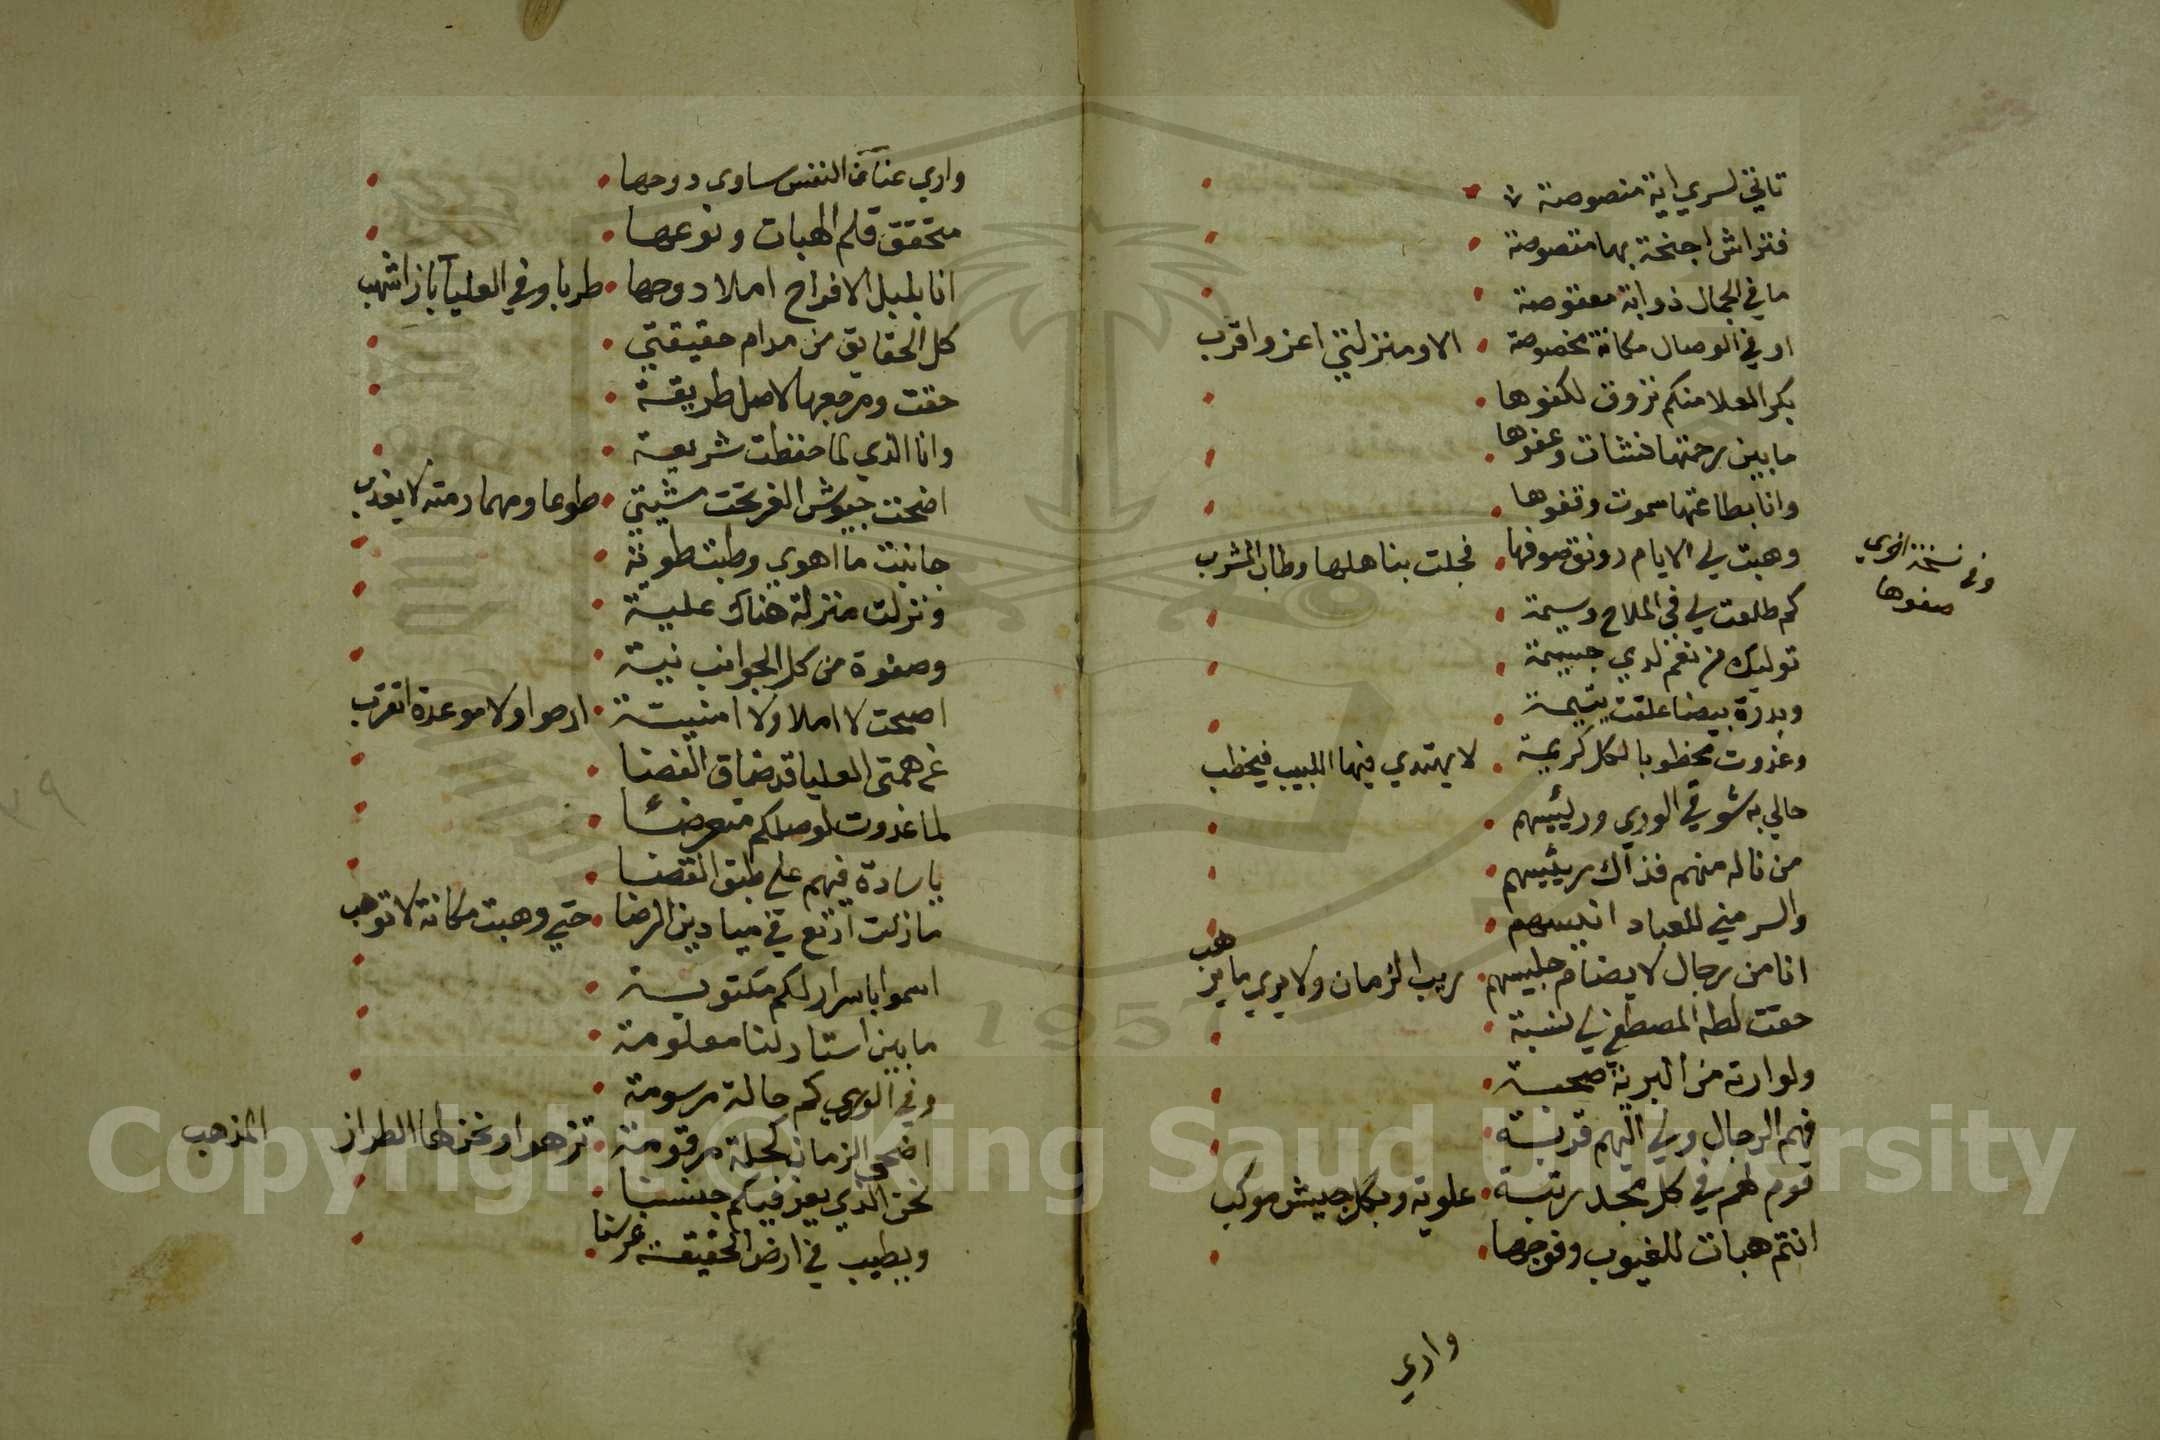 تاتي لسري اية منصوصة
فتراش اجنحة بها مقصوصة
ما في الجمال ذوابة معقوصة
او في الوصال مكانة مخصوصة الا ومنزلتي اعز واقرب
بكر العلا منكم تزوق لكفوها
ما بين رحمتها نشات وعفوها
وانا بطاعتها سموت وقفوها
وهبت لي الايام رونق صوفها فجلت بنا هلها وطاب المشرب
وفي نسخة اخري
صفوها
كم طلعت لي في الملاح وسيمة
توليك من نغم لدي جسيمة
وبدرة بيضا علقت يتيمة
وغدوت مخطوبا لكل كريمة لا يهتدي فيها اللبيب فيخطب
حالي به شوقي الوري ورئيسهم
من ناله منهم فذاك رئيسهم
والسر مني للعباد انيسهم
انا من رجال لا يضام جليسهم ريب الزمان ولا يري ما يرهب
حقت لطه المصطفي لي نسبة
ولوارثه من البرية صحبة
فهم الرجال ولي اليهم قربة
قوم لهم في كل مجد رتبة علوية وبكل جيش موكب
انتم هبات للغيوب وفوجها
واري
واري عنا النفس ساوي دوحها
متحقق قلم الهبات ونوعها
انا بلبل الافراح املا دوحها طربا وفي العليا باز اشهب
كل الحقايق من مدام حقيقتي
حقت ومرجعها لاصل طريقة
وانا الذي لما حفظت شريعة
اضحت جيوش الغر تحت مشيتي طوعا ومهما رمته لا يغرب
جانبت ما اهوي وطبت طوية
ونزلت منزلة هناك علية
وصفوة من كل الجوانب نية
اصبحت لا املا ولا امنية ارجوا ولا موعدة اتقرب
عن همتي العليا قد ضاق الفضا
لما غدوت لوصلكم متعرضا
يا سادة فيهم علي طبق القضا
ما زلت ارتع في ميادين الرضا حتي وهبت مكانة لا توهب
اسموا باسرار لكم مكتوبة
ما بين استار لنا معلومة
وفي الوري كم حالة مرسومة
اضحي الزمان كحلة مرقومة تزهوا ونحن لها الطراز المذهب
نحن الذي يعز فيكم جنسنا
ويطيب في ارض الحقيقة غرسنا
Copyright © King Saud University
1957